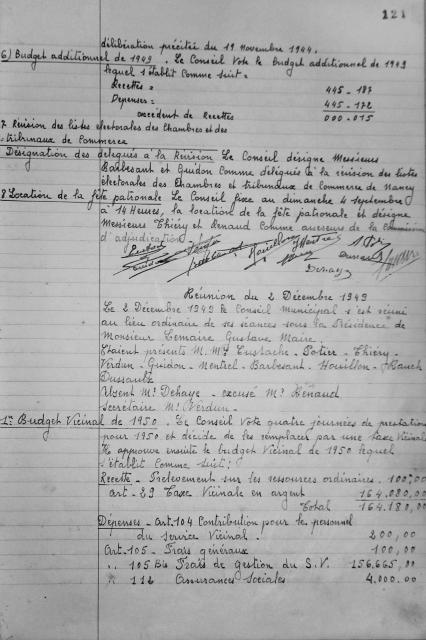 121
délibération précitée du 19 Novembre 1944.
6) Budget additionnel de 1949. Le Conseil Vote le budget additionnel de 1949
lequel s'établit Comme suit =
Recettes = 445-187
Dépenses = 445-172
excédent de Recettes 000-015
7 Révision des listes électorales des Chambres et des
tribunaux de Commerce
Désignation des délégués à la Révision Le Conseil désigne Messieurs
Barbesant et Guidon Comme délégués à la révision des listes
électorales des Chambres et tribunaux de Commerce de Nancy
8 Location de la fête patronale Le Conseil fixe au dimanche 4 septembre
à 14 Heures, la location de la fête patronale et désigne
Messieurs Thiéry et Renaud Comme assesseurs de la Commission
d'adjudication.
Dehaye
Réunion du 2 Décembre 1949
Le 2 Décembre 1949 le Conseil municipal s'est réuni
au lieu ordinaire de ses séances sous la Présidence de
Monsieur Lemaire Gustave Maire.
Etaient présents M. Mrs Eustache - Potier - Thiéry -
Verdun - Guidon - Mentrel - Barbesant - Houillon -
Dussaulx
Absent Mr Dehaye - excusé Mr Renaud
Secrétaire Mr Verdun -
1° Budget Vicinal de 1950 - Le Conseil Vote quatre journées de prestations
pour 1950 et décide de les remplacer par une taxe Vicinale
Il approuve ensuite le budget Vicinal de 1950 lequel
s'établit Comme suit:
Recette - Prélèvement sur les ressources ordinaires. 100,00
Art - 29 Taxe Vicinale en argent 164.080,00
Total 164.180,00
Dépenses - Art. 104 Contribution pour le personnel
du service Vicinal. 200,00
Art. 105 - Frais généraux 100,00
" 105 Bis Frais de gestion du S.V. 156.665,00
" 112 Assurances Sociales 4.000.00